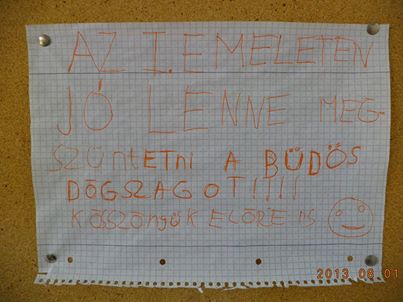 AZ I. EMELETEN
JÓ LENNE MEG-
SZÜNTETNI A BÜDÖS
DÖGSZAGOT!!!!
KÖSZÖNJÜK ELŐRE IS
2013.08.01